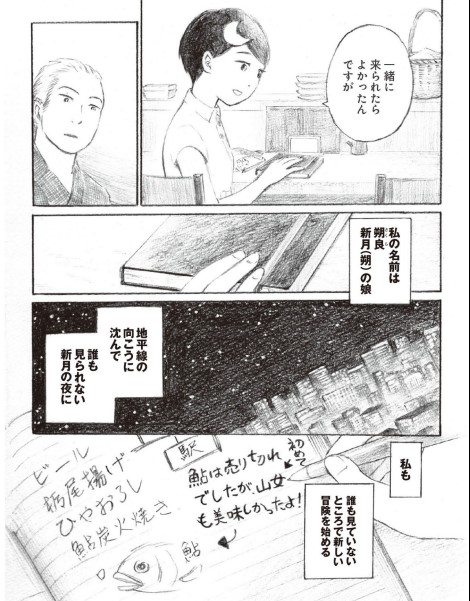 一緒に
来られたら
よかったん
ですが
私の名前は
朔良
新月(朔)の娘
地平線の
向こうに
沈んで
誰も
見られない
新月の夜に
私も
誰も見ていない
ところで新しい
冒険を始める
駅
初めて
鮎は売り切れ
でしたが、山女
も美味しかったよ!
ビール
栃尾揚げ
ひやおろし
鮎炭火焼き
鮎